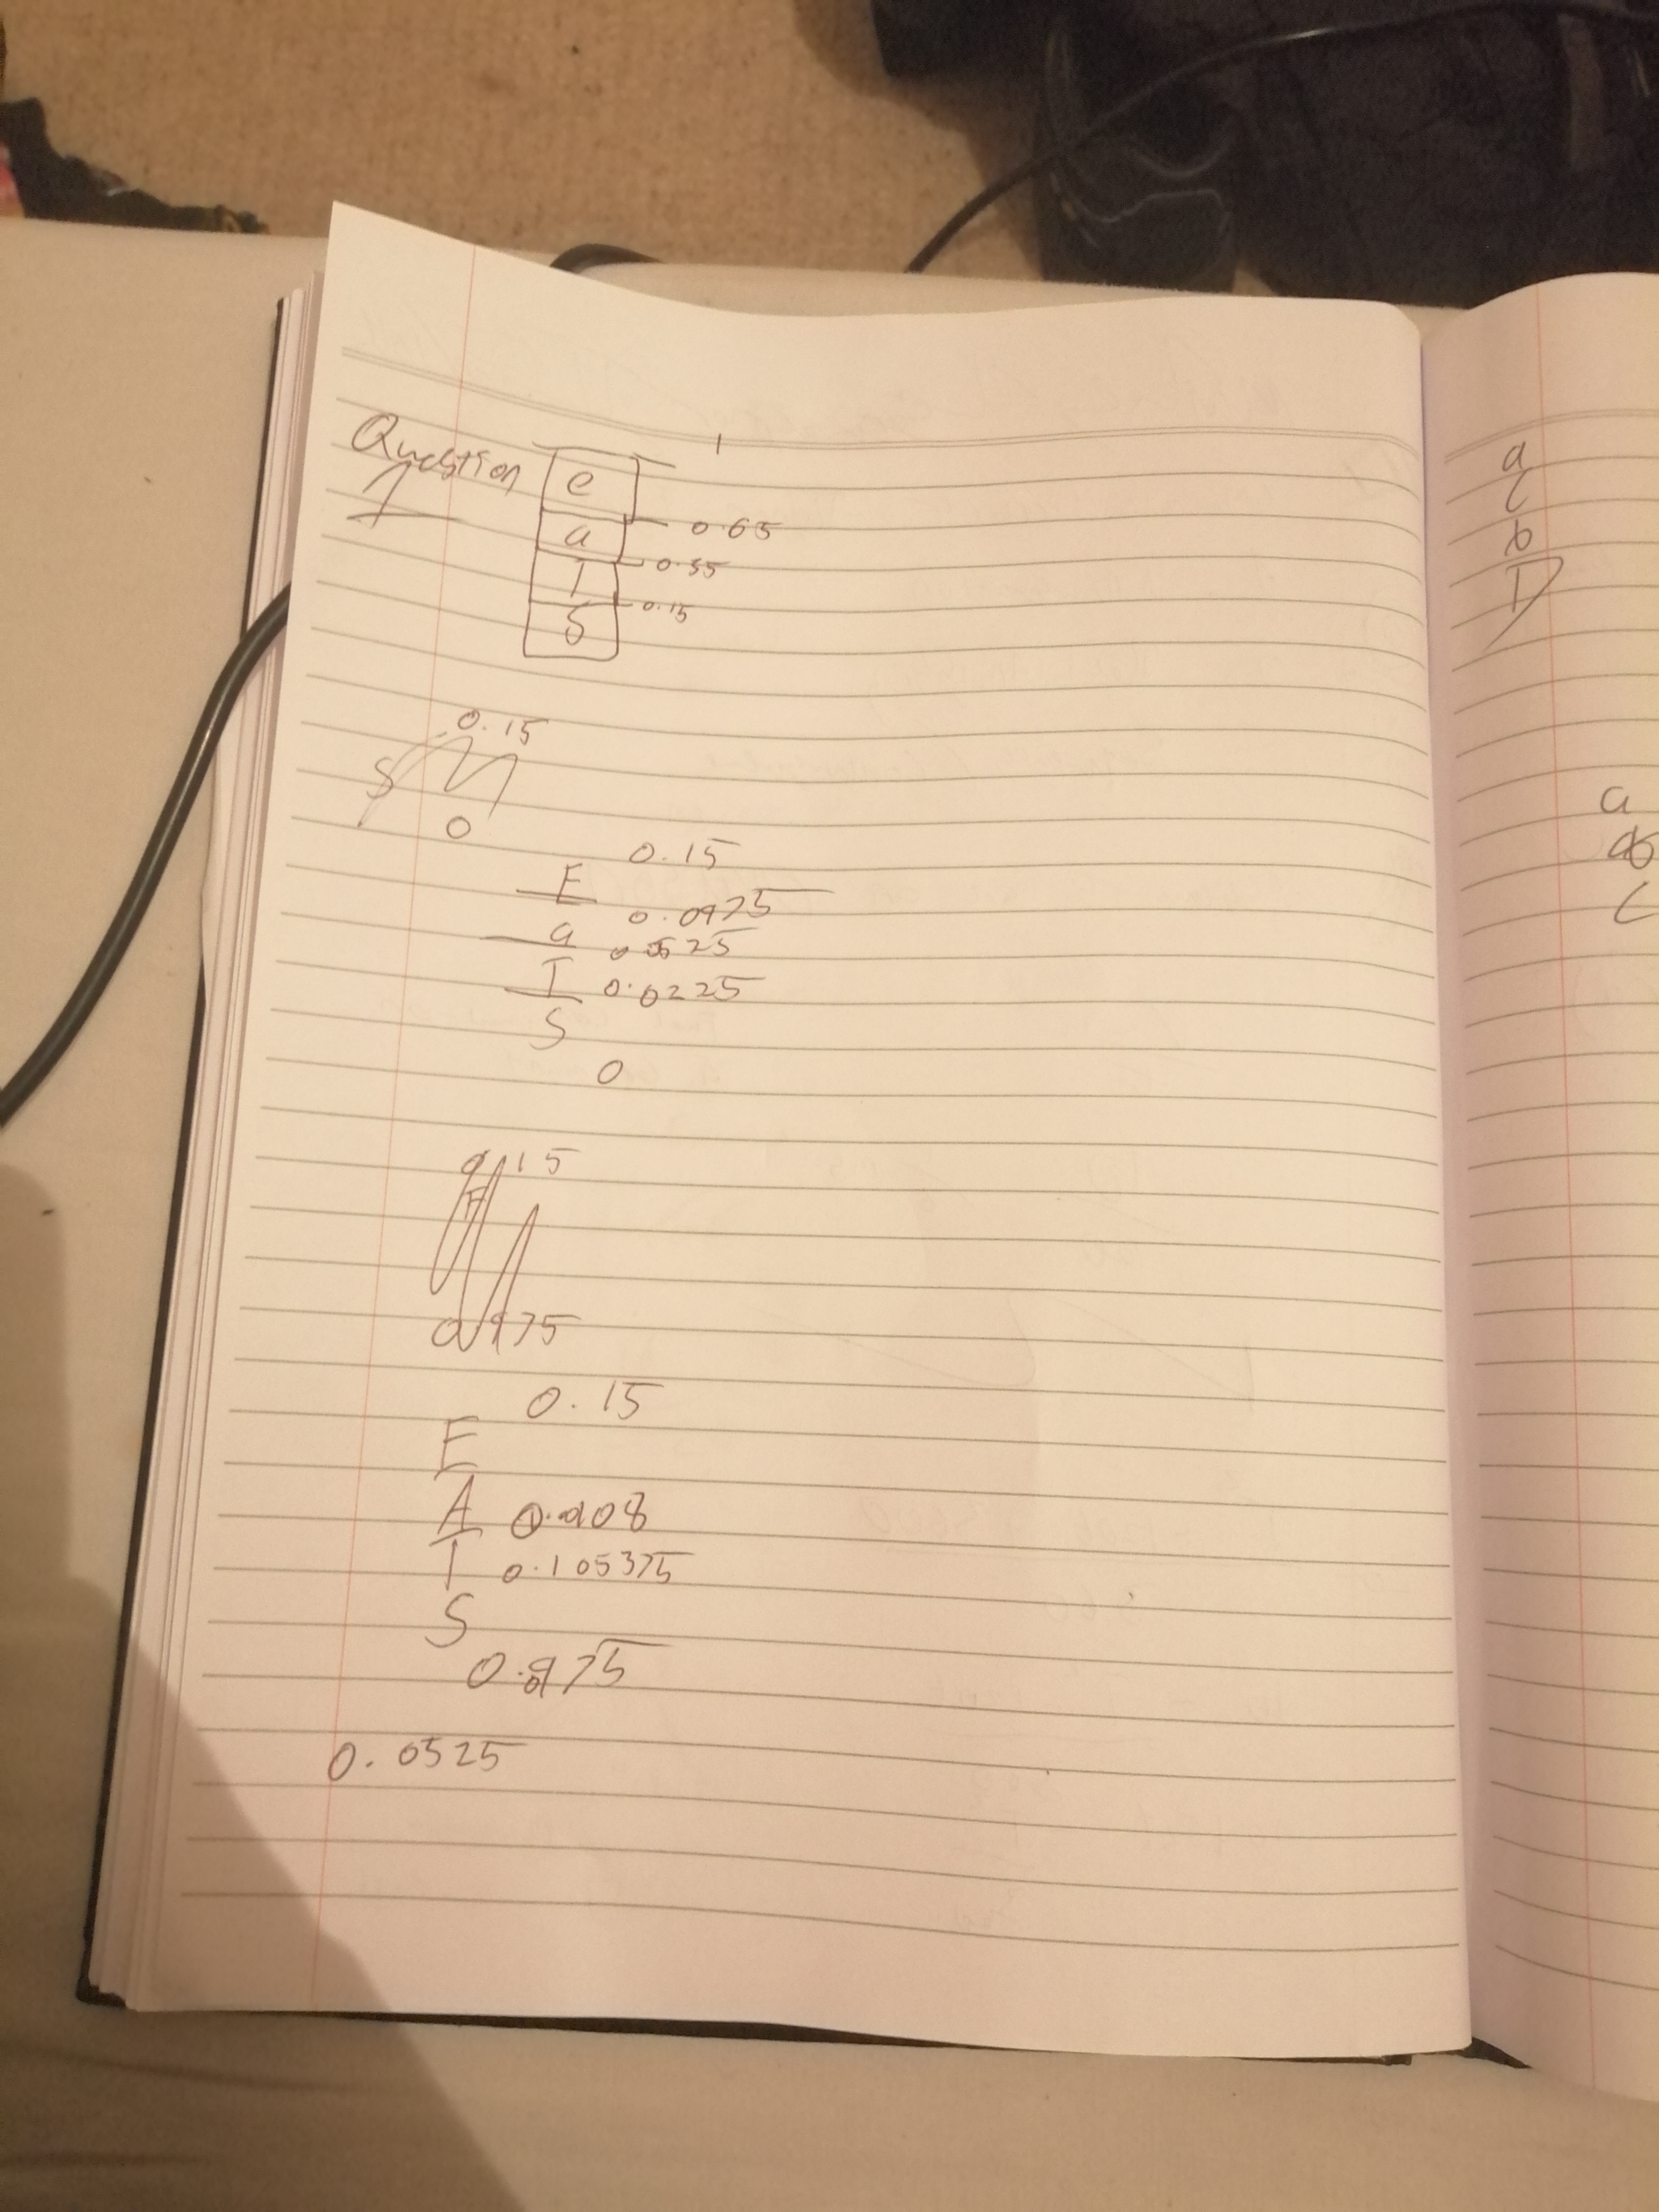 Question
1
e
a 0.65
I 0.35
S 0.15
0.15
S
0
0.15
E
0.0975
a 0.0525
I 0.0225
S
0
15
E
975
0.15
E
A 0.108
I 0.105375
S
0.0975
0.0525
a
c
b
D
a
b
c